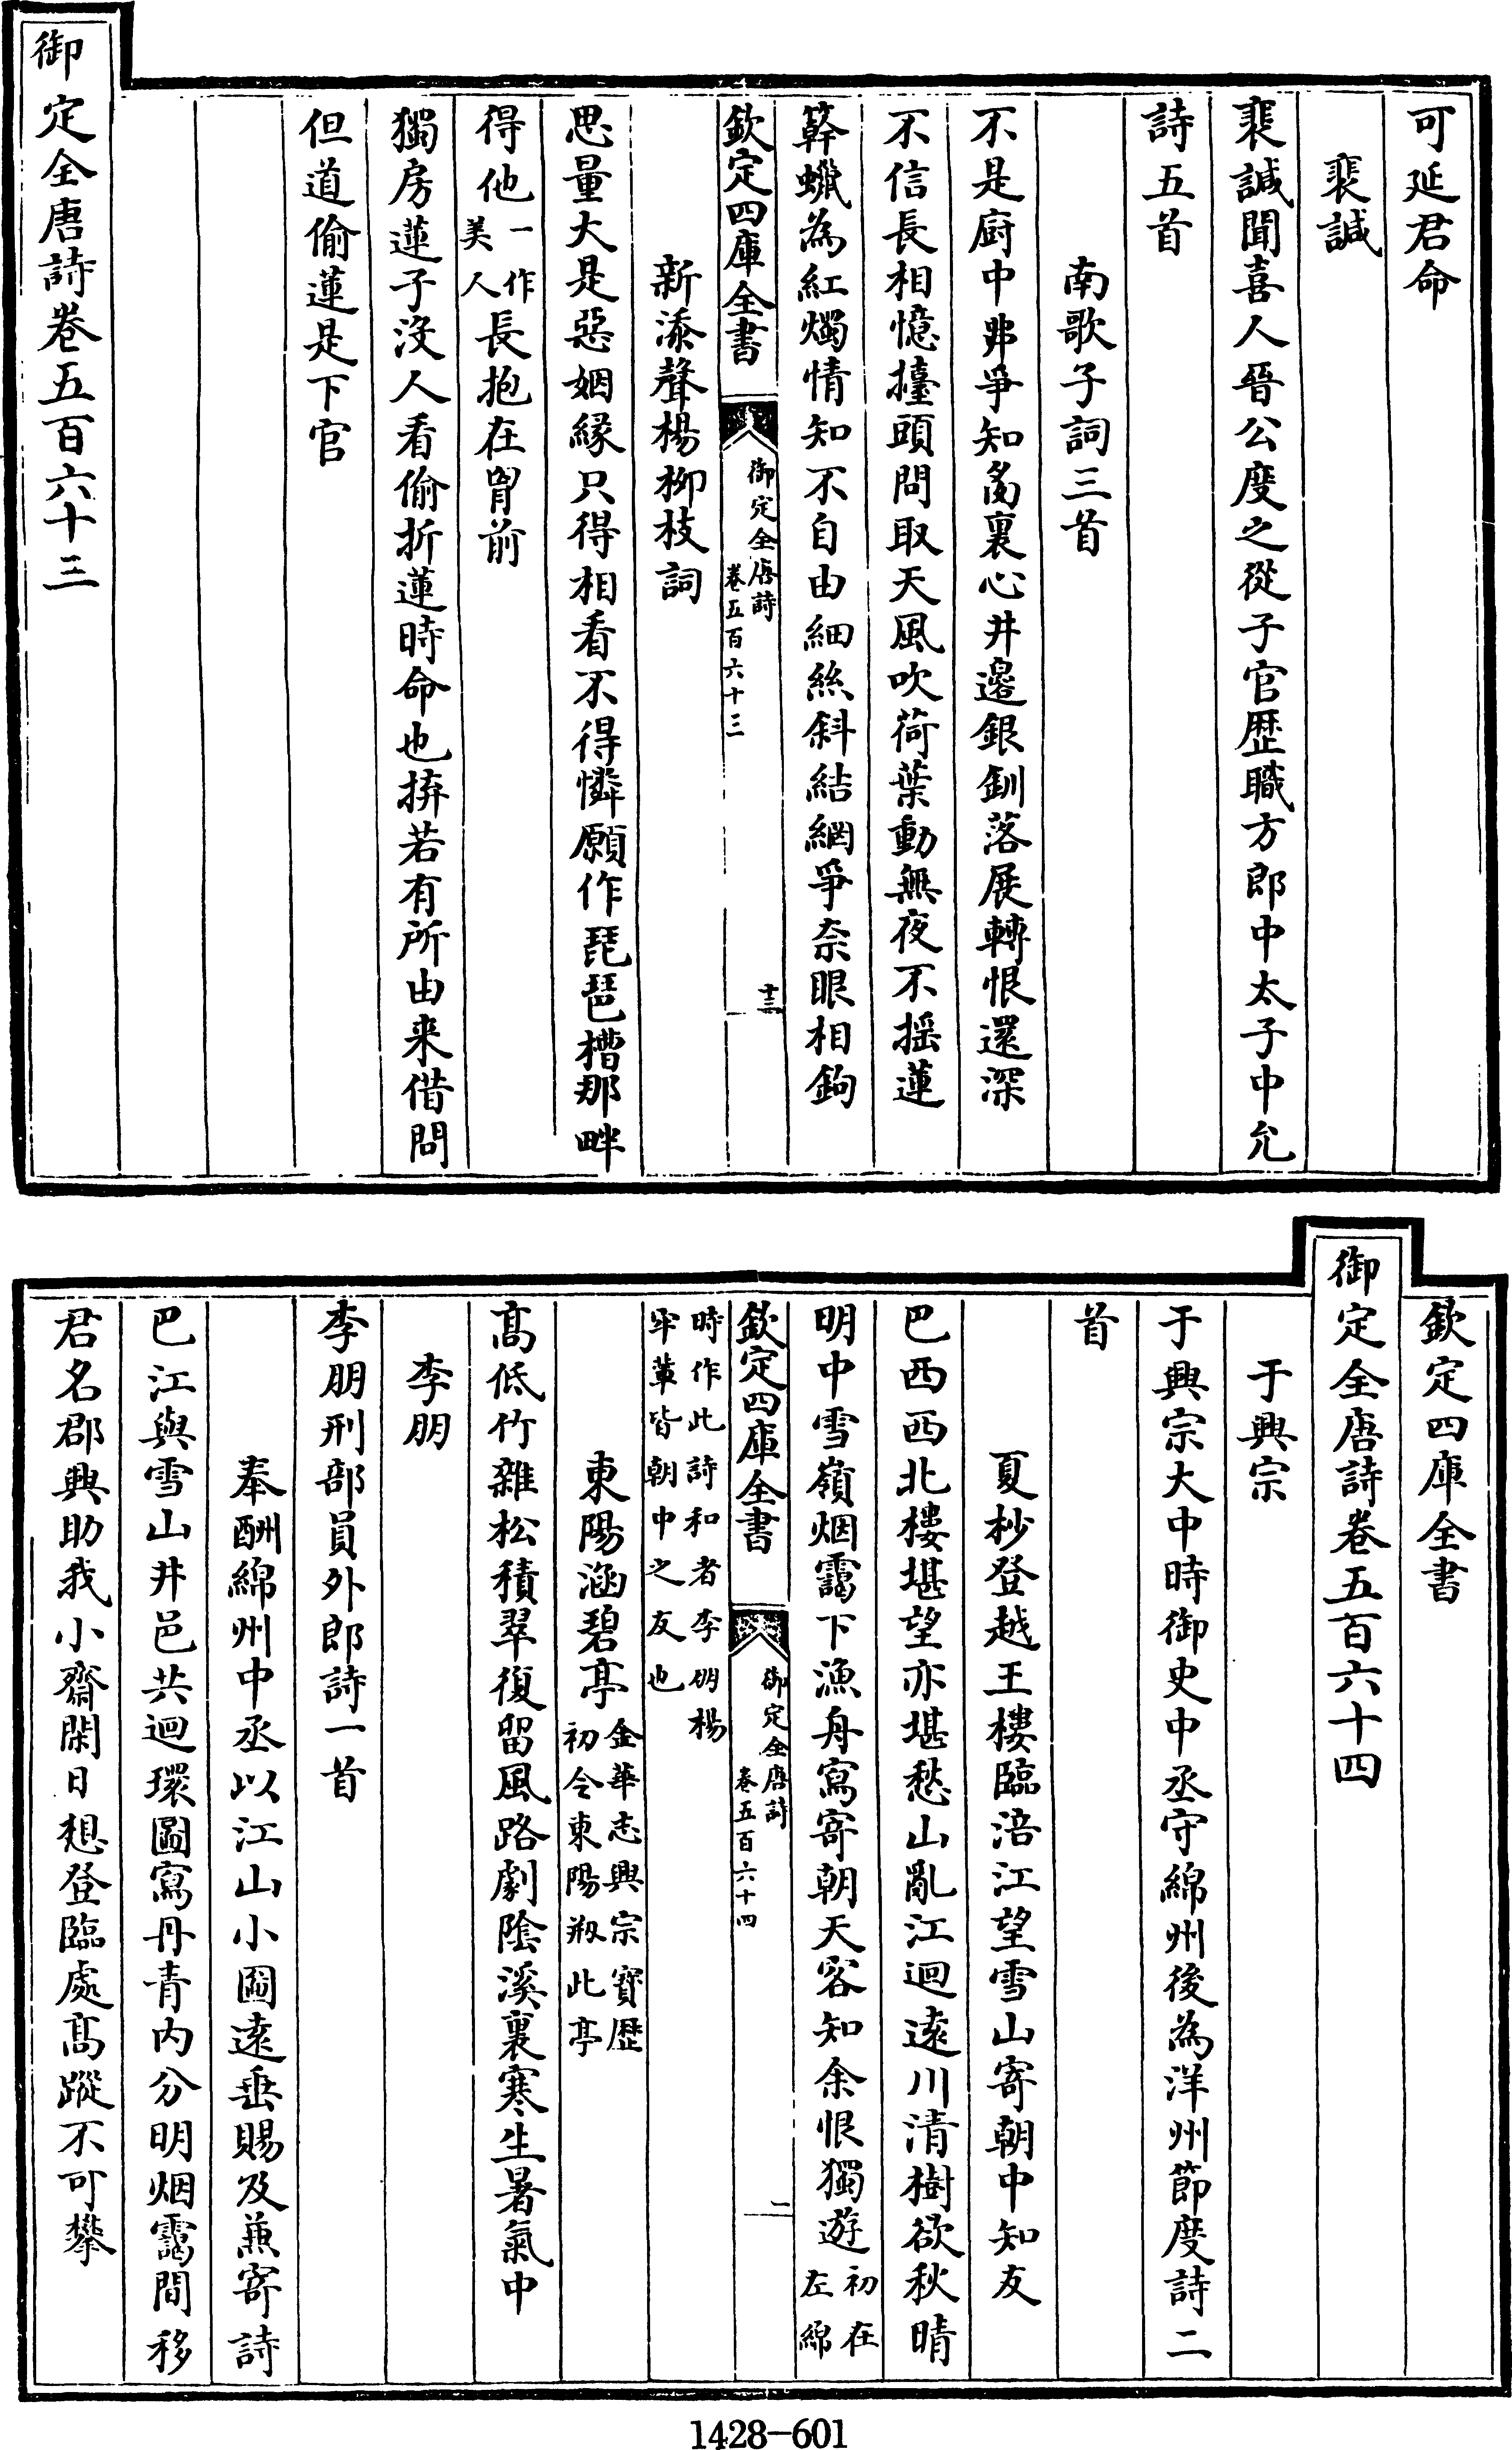 可延君命
裴諴
裴諴聞喜人晉公度之從子官歷職方郎中太子中允
詩五首
南歌子詞三首
不是厨中弗爭知㡬裏心井邊銀釧落展轉恨還深
不信長相憶擡頭問取天風吹荷葉動無夜不揺蓮
簳蠟為紅燭情知不自由細絲斜結網爭奈眼相鉤
欽定四庫全書
御定全唐詩
卷五百六十三
十三
新添聲楊柳枝詞
思量大是惡姻縁只得相看不得憐願作琵琶槽那畔
得他一作美人長抱在胷前
獨房蓮子没人看偷折蓮時命也拚若有所由来借問
但道偷蓮是下官
御定全唐詩卷五百六十三
欽定四庫全書
御定全唐詩卷五百六十四
于興宗
于興宗大中時御史中丞守綿州後為洋州節度詩二
首
夏杪登越王樓臨涪江望雪山寄朝中知友
巴西西北樓堪望亦堪愁山亂江迴逺川清樹欲秋晴
明中雪嶺烟靄下漁舟寫寄朝天客知余恨獨遊初在左綿
欽定四庫全書
御定全唐詩
卷五百六十四
二
時作此詩和者李朋楊牢軰皆朝中之友也
東陽涵碧亭金華志興宗寶歴初令東陽剏此亭
髙低竹雜松積翠復留風路劇陰溪裏寒生暑氣中
李朋
李朋刑部員外郎詩一首
奉酬綿州中丞以江山小圖逺垂賜及兼寄詩
巴江與雪山井邑共迴環圖寫丹青内分明烟靄間移
君名郡興助我小齋閑日想登臨處髙蹤不可攀
1428-601